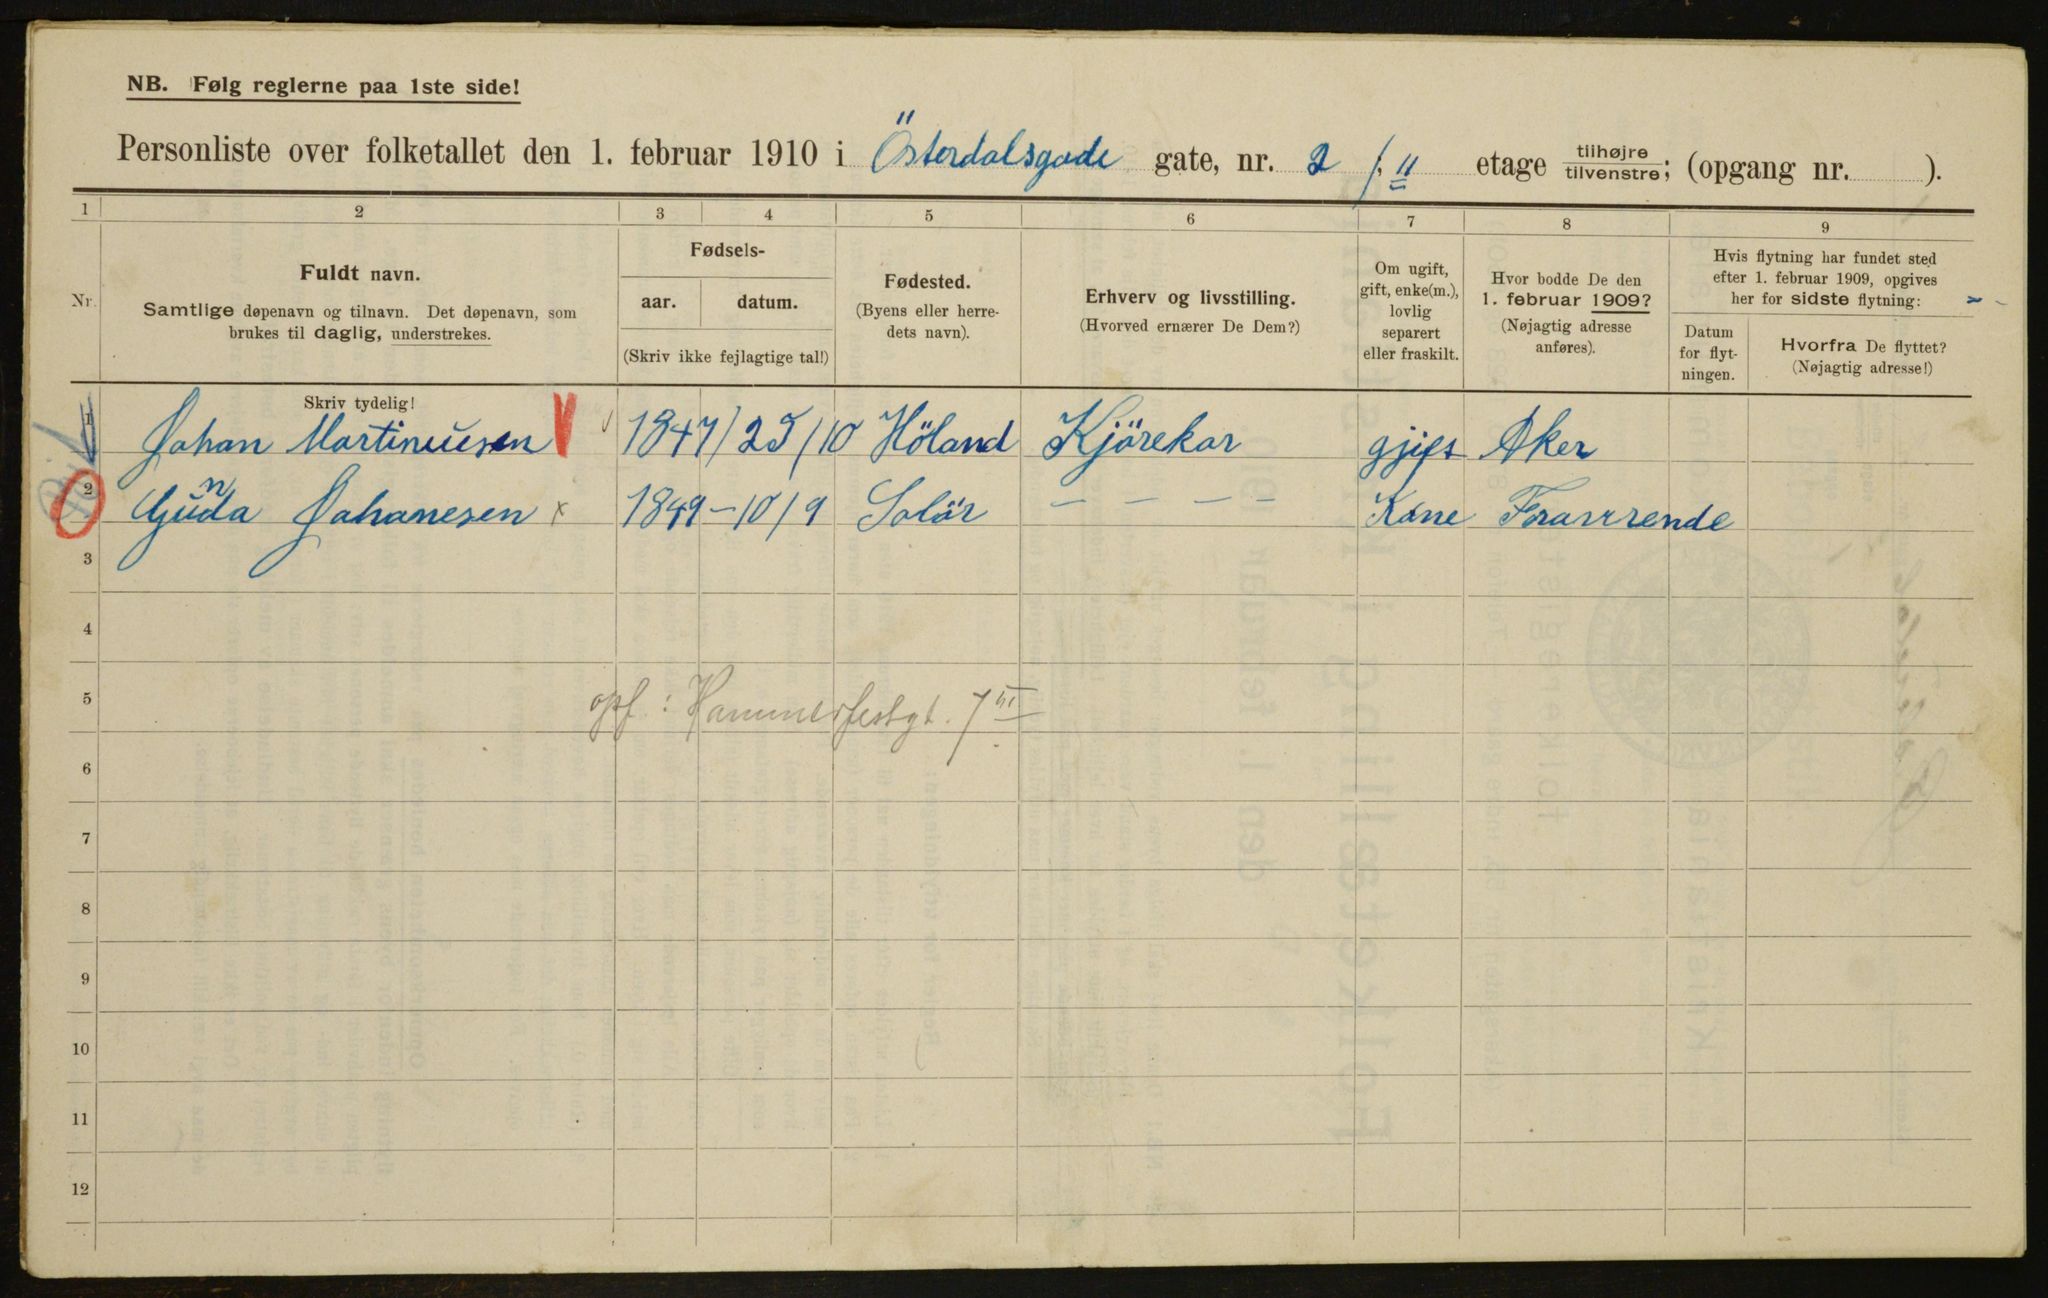 NB. Følg reglerne paa 1ste side!
Personliste over folketallet den 1. februar 1910 i Österdalsgade gate, nr. 2 /, II etage tilhøjre/tilvenstre; (opgang nr. ).
1 2 3 4 5 6 7 8 9
Nr.
Fuldt navn.
Samtlige døpenavn og tilnavn. Det døpenavn, som
brukes til daglig, understrekes.
Skriv tydelig!
Fødsels-
aar. datum.
(Skriv ikke fejlagtige tal!)
Fødested.
(Byens eller herre-
dets navn).
Erhverv og livsstilling.
(Hvorved ernærer De Dem?)
Om ugift,
gift, enke(m.),
lovlig
separert
eller fraskilt.
Hvor bodde De den
1. februar 1909?
(Nøjagtig adresse
anføres).
Hvis flytning har fundet sted
efter 1. februar 1909, opgives
her for sidste flytning:
Datum
for flyt-
ningen.
Hvorfra De flyttet?
(Nøjagtig adresse!)
1 Johan Martinusen 1847 / 25 / 10 Höland Kjörekar gjift Aker
2 Gunda Johanesen x 1849 – 10 / 9 Solör – – – – Kone Foravrende
3
4
5 opf: Hammerfestgt. 7 III
6
7
8
9
10
11
12